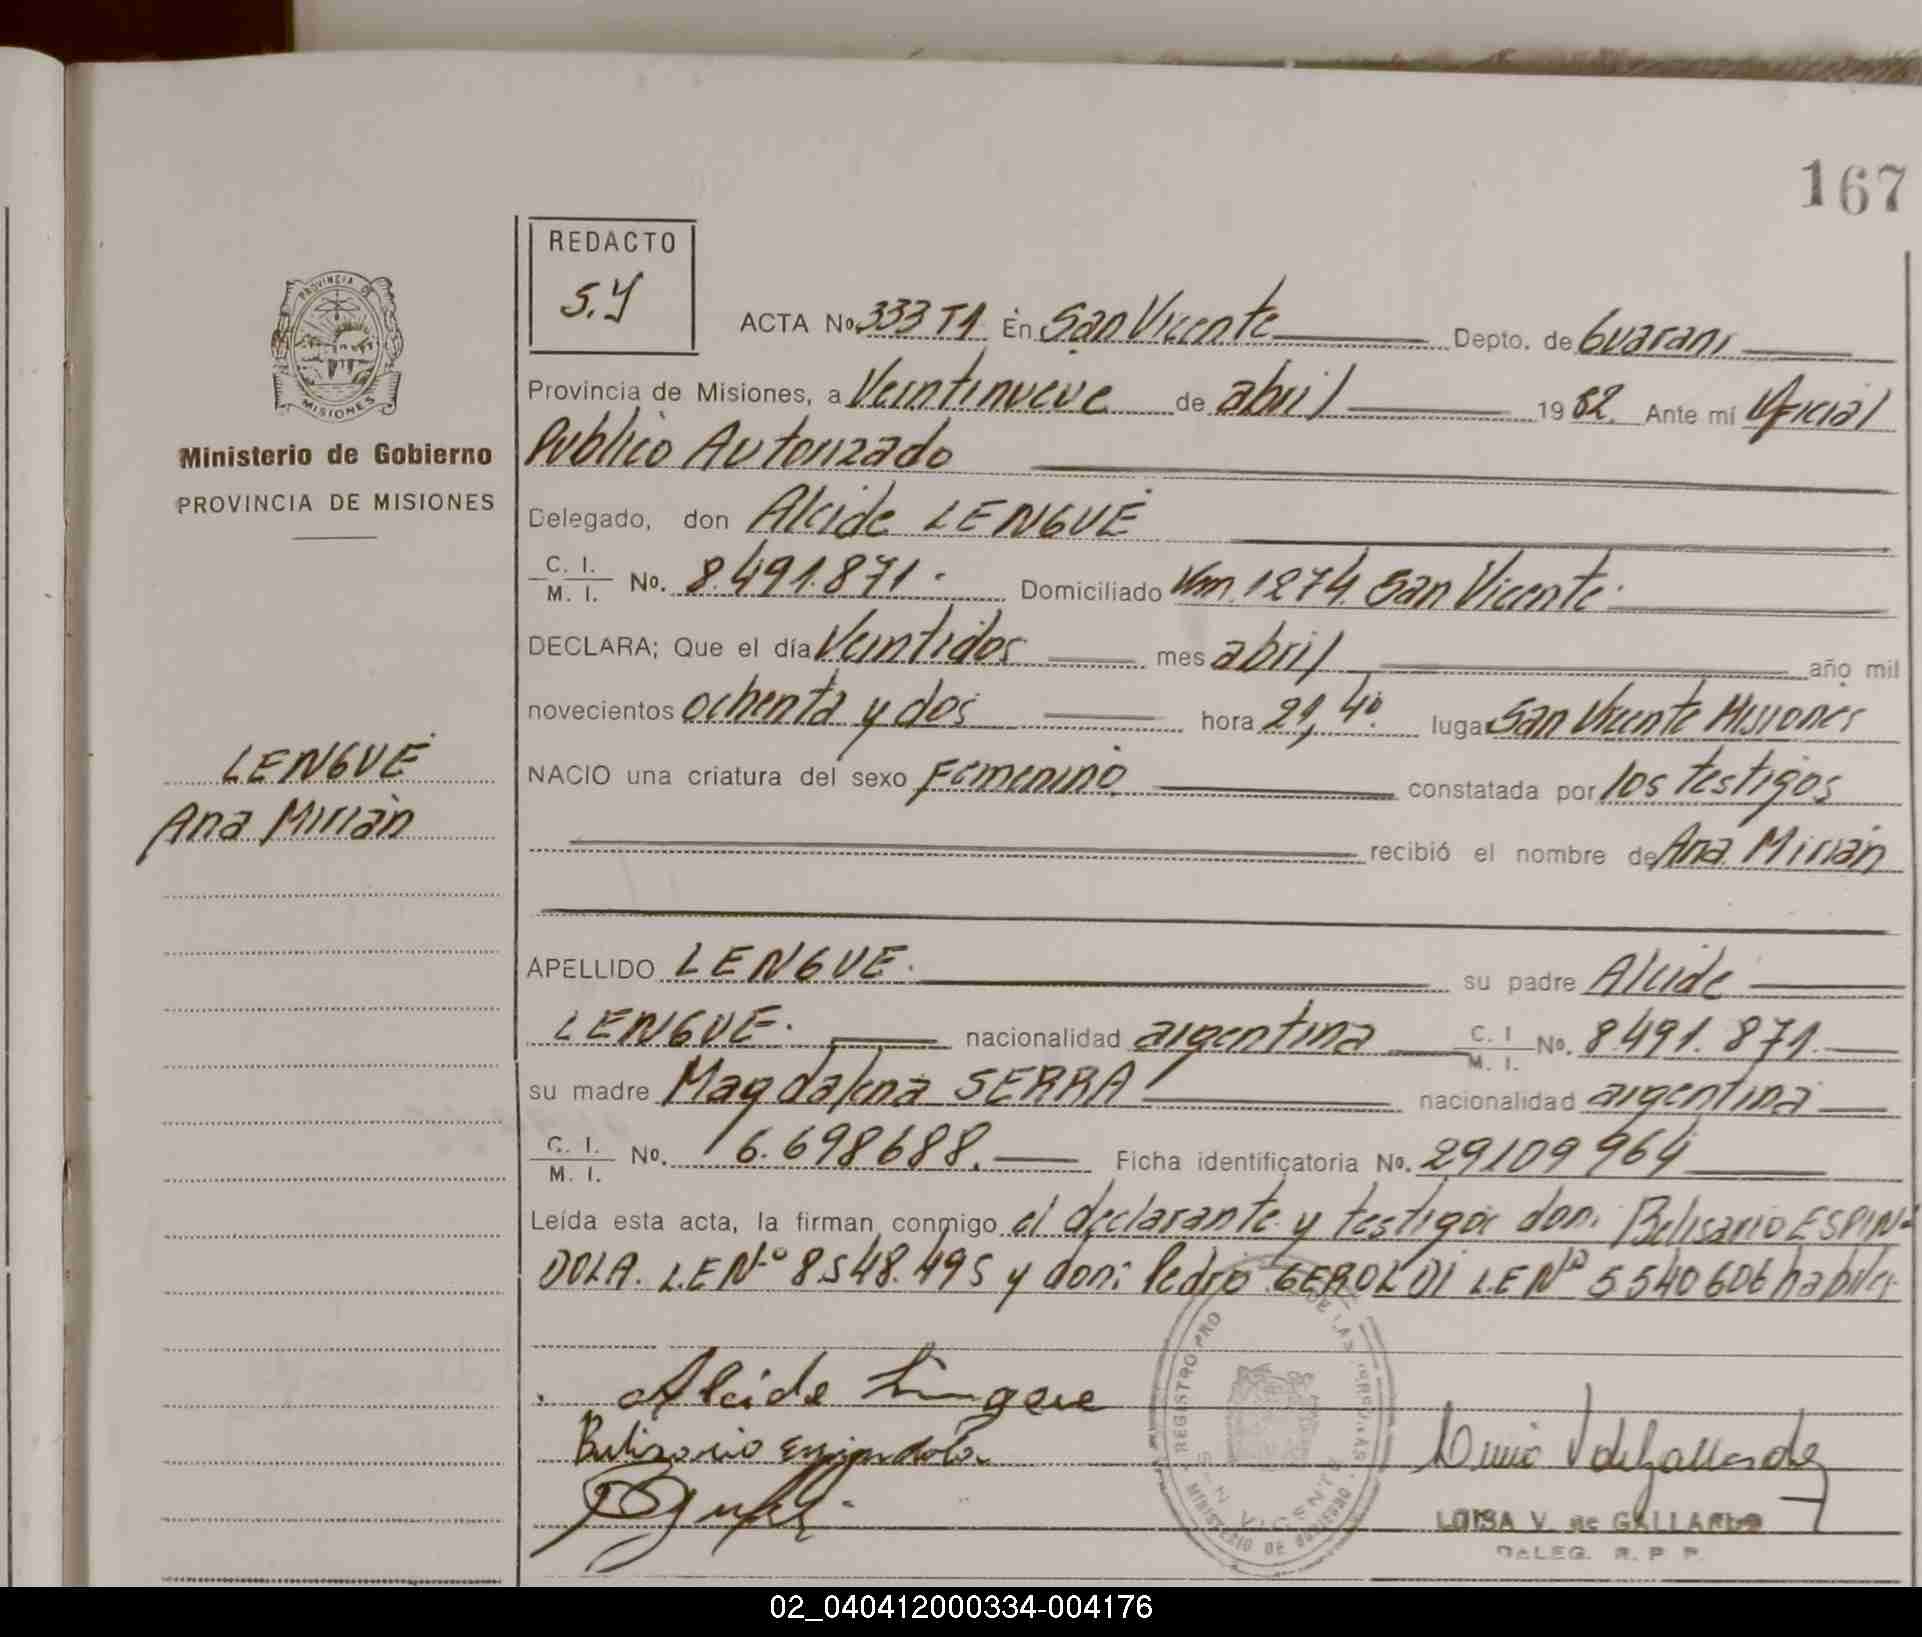 167
REDACTO
S.Y
ACTA No. 333 T1 En San Vicente Depto. de Guarani
PROVINCIA DE
MISIONES
Provincia de Misiones, a Veintinueve de abril 1982. Ante mí Oficial
Ministerio de Gobierno
Publico Autorizado
PROVINCIA DE MISIONES
Delegado, don Alcide LENGUE
C. I.
M. I. No. 8.491.871. Domiciliado Km. 1274. San Vicente.
DECLARA; Que el día Veintidos mes abril año mil
novecientos ochenta y dos hora 21,40 lugar San Vicente Misiones
LENGUE
NACIO una criatura del sexo Femenino constatada por los testigos
Ana Mirián
recibió el nombre de Ana Mirián
APELLIDO LENGUE. su padre Alcide
LENGUE. nacionalidad argentina C. I. M. I. No. 8491.871.
su madre Magdalena SERRA nacionalidad argentina
C. I.
M. I. No. 6.698688. Ficha identificatoria No. 29109964
Leída esta acta, la firman conmigo el declarante y testigos don: Belisario ESPIN-
DOLA. L.E Nº 8.548.495 y don: Pedro GEROLDI L.E Nº 5540606 habiles
Alcide Lengue
Belizario Espindola
REGISTRO PRO DE LAS PERSONAS
SAN VICENTE
MINISTERIO DE GOBIERNO
LUISA V. de GALLARDO
DELEG. R. P. P.
02_040412000334-004176